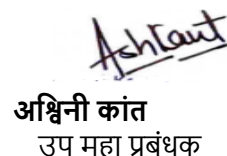 Ashkant
अश्विनी कांत
उप महा प्रबंधक